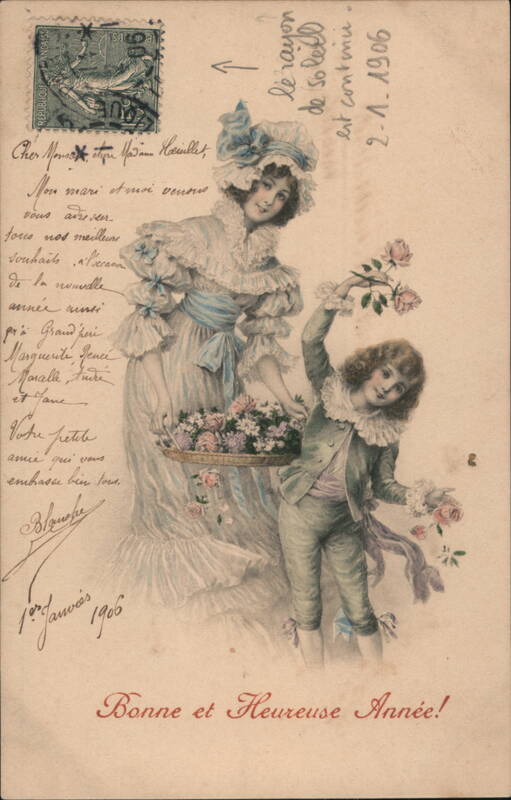 REPUBLIQUE FRANÇAISE
06
le rayon
de soleil
est continu.
2-1-1906
Cher Monsieur et Madame
Mon mari et moi venons
vous adresser
tous nos meilleurs
souhaits à l'occasion
de la nouvelle
année ainsi
qu'à Grand'père
Marguerite, Renée
Marcelle, André
et Jane
Votre petite
amie qui vous
embrasse bien tous.
Blanche
1er Janvier 1906
Bonne et Heureuse Année!